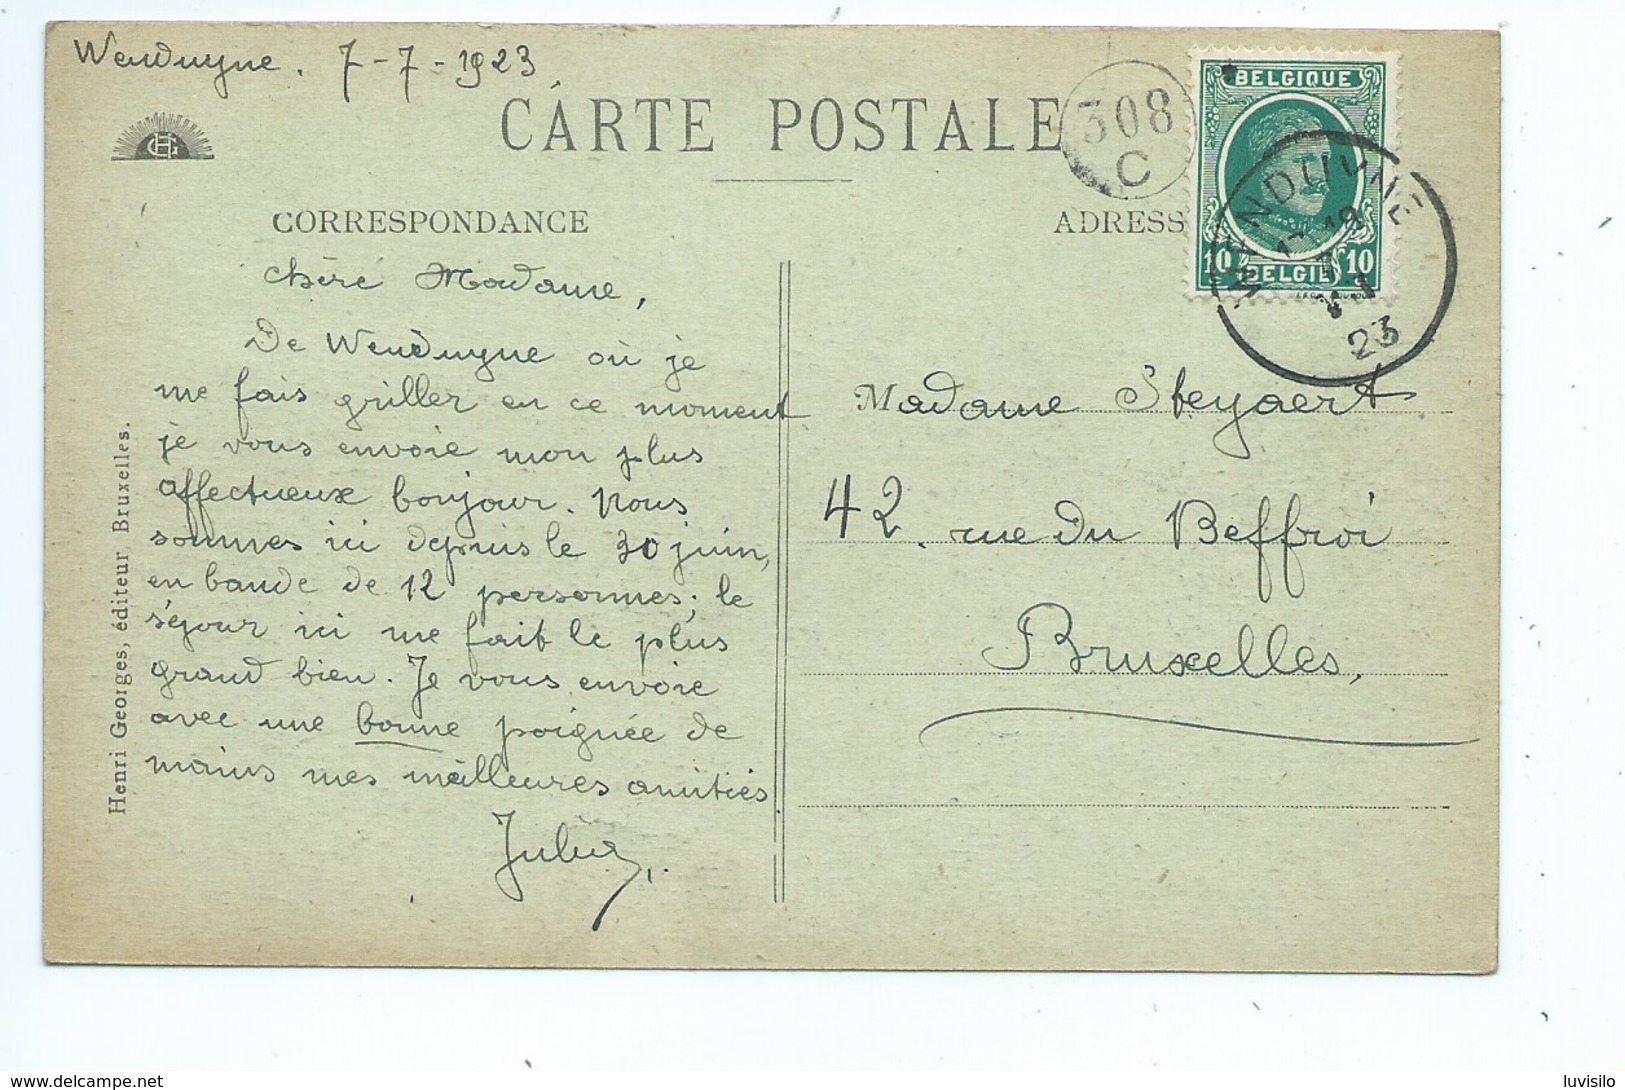 Wenduyne. 7-7-1923
CARTE POSTALE
308
C
BELGIQUE
10 BELGIË 10
WENDUYNE
23
CORRESPONDANCE
ADRESS
Chère Madame,
De Wenduyne où je
me fais griller en ce moment
je vous envoie mon plus
affectueux bonjour. Nous
sommes ici depuis le 30 juin,
en bande de 12 personnes; le
séjour ici me fait le plus
grand bien. Je vous envoie
avec une bonne poignée de
mains mes meilleures amitiés
Madame Steyaert
42. rue du Beffroi
Bruxelles,
Henri Georges, éditeur Bruxelles.
delcampe.net
luvisilo